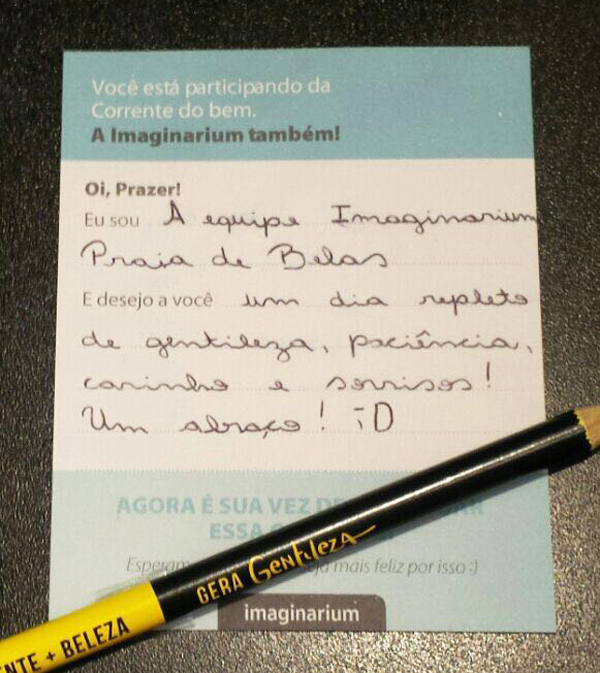 Você está participando da
Corrente do bem.
A Imaginarium também!
Oi, Prazer!
Eu sou A equipe Imaginarium
Praia de Belas
E desejo a você um dia repleto
de gentileza, paciência,
carinho e sorrisos!
Um abraço! ;D
AGORA É SUA VEZ
ESSA
mais feliz por isso :)
GERA GENTILEZA
imaginarium
+ BELEZA